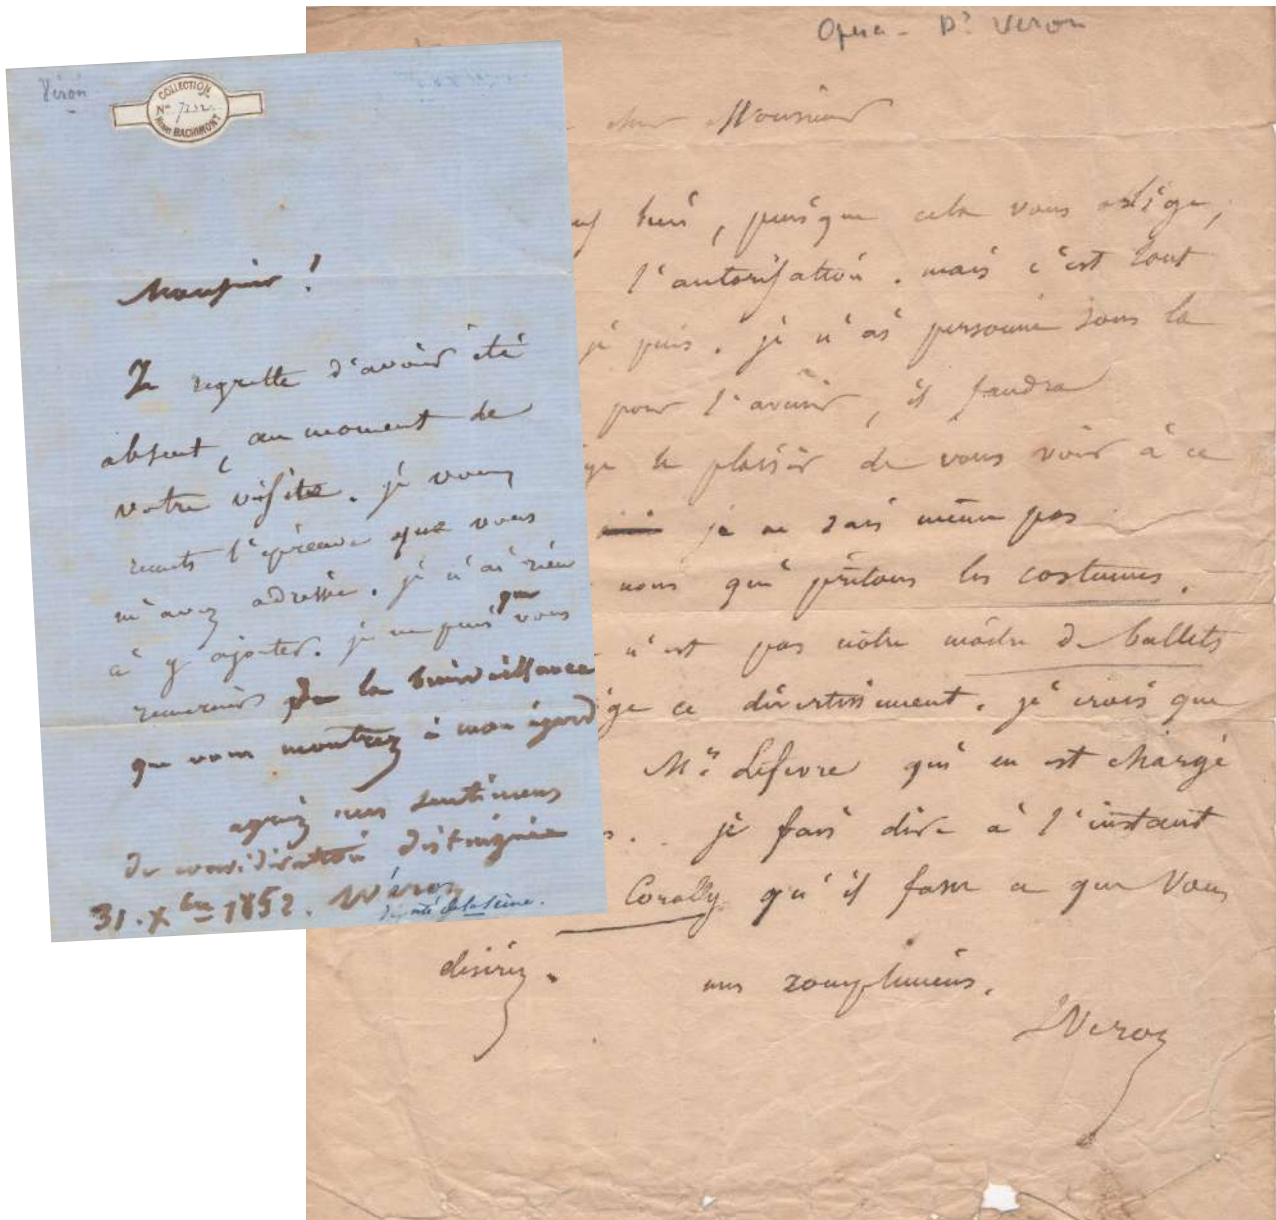 Véron
COLLECTION
No 7212
Henri BACHIMONT
Monsieur !
Je regrette d'avoir été
absent, au moment de
votre visite. je vous
remets l'épreuve que vous
m'avez adressée. je n'ai rien
à y ajouter. je ne puis que vous
remercier de la bienveillance
que vous montrez à mon égard
agréez mes sentimens
de considération distinguée
31. Xbre 1852. Véron
député de la Seine.
Opera - Dr Veron
cher Monsieur
bien, puisque cela vous oblige,
l'autorisation. mais c'est tout
je puis. je n'ai personne sous la
pour l'avenir, il faudra
le plaisir de vous voir à ce
je ne sais même pas
nous qui prêtons les costumes.
n'est pas nôtre maître de ballets
ce divertissement. je crois que
Mr Lefevre qui en est chargé
je fais dire à l'instant
Corally qu'il fasse ce que vous
désirez.
mes complimens.
LVeron